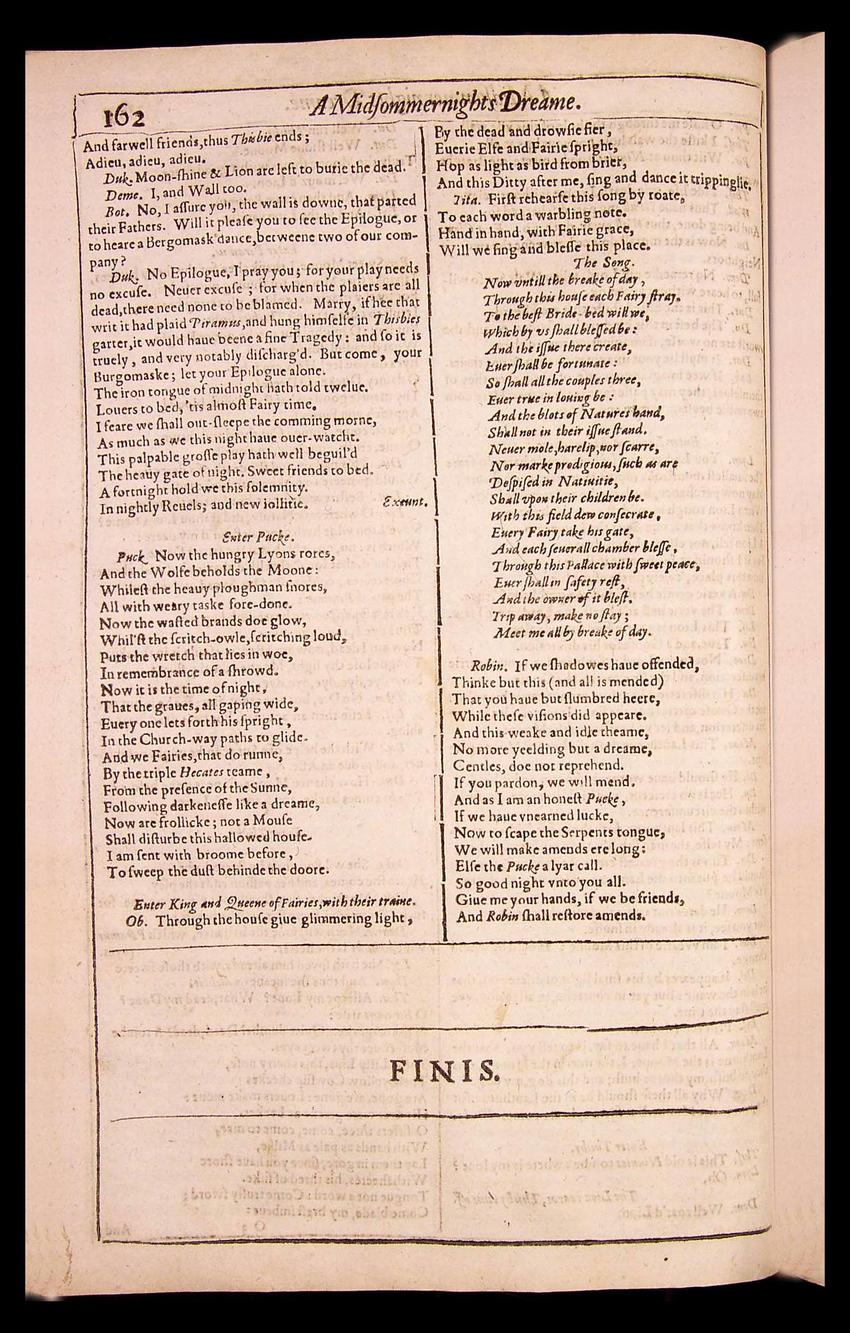 162
A Midſommernights Dreame.
And farwell friends, thus Thisbie ends;
Adieu, adieu, adieu.
Duk. Moon-ſhine & Lion are left to burie the dead.
Deme. I, and Wall too.
Bot. No, I aſſure you, the wall is downe, that parted
their Fathers. Will it pleaſe you to ſee the Epilogue, or
to heare a Bergomask dance, betweene two of our com-
pany?
Duk. No Epilogue, I pray you; for your play needs
no excuſe. Neuer excuſe; for when the plaiers are all
dead, there need none to be blamed. Marry, if hee that
writ it had plaid Piramus, and hung himſelfe in Thisbies
garter, it would haue beene a fine Tragedy: and ſo it is
truely, and very notably diſcharg'd. But come, your
Burgomaske; let your Epilogue alone.
The iron tongue of midnight hath told twelue.
Louers to bed, 'tis almoſt Fairy time.
I feare we ſhall out-ſleepe the comming morne,
As much as we this night haue ouer-watcht.
This palpable groſſe play hath well beguil'd
The heauy gate of night. Sweet friends to bed.
A fortnight hold we this ſolemnity.
In nightly Reuels; and new iollitie. Exeunt.
Enter Pucke.
Puck Now the hungry Lyons rores,
And the Wolfe beholds the Moone:
Whileſt the heauy ploughman ſnores,
All with weary taske fore-done.
Now the waſted brands doe glow,
Whil'ſt the ſcritch-owle, ſcritching loud,
Puts the wretch that lies in woe,
In remembrance of a ſhrowd.
Now it is the time of night,
That the graues, all gaping wide,
Euery one lets forth his ſpright,
In the Church-way paths to glide.
And we Fairies, that do runne,
By the triple Hecates teame,
From the preſence of the Sunne,
Following darkeneſſe like a dreame,
Now are frollicke; not a Mouſe
Shall diſturbe this hallowed houſe.
I am ſent with broome before,
To ſweep the duſt behinde the doore.
Enter King and Queene of Fairies, with their traine.
Ob. Through the houſe giue glimmering light,
By the dead and drowſie fier,
Euerie Elfe and Fairie ſpright,
Hop as light as bird from brier,
And this Ditty after me, ſing and dance it trippinglie.
Tita. Firſt rehearſe this ſong by roate,
To each word a warbling note.
Hand in hand, with Fairie grace,
Will we ſing and bleſſe this place.
The Song.
Now vntill the breake of day,
Through this houſe each Fairy ſtray.
To the beſt Bride-bed will we,
Which by vs ſhall bleſſed be:
And the iſſue there create,
Euer ſhall be fortunate:
So ſhall all the couples three,
Euer true in louing be:
And the blots of Natures hand,
Shall not in their iſſue ſtand.
Neuer mole, harelip, nor ſcarre,
Nor marke prodigious, ſuch as are
Deſpiſed in Natiuitie,
Shall vpon their children be.
With this field dew conſecrate,
Euery Fairy take his gate,
And each ſeuerall chamber bleſſe,
Through this Pallace with ſweet peace,
Euer ſhall in ſafety reſt,
And the owner of it bleſt.
Trip away, make no ſtay;
Meet me all by breake of day.
Robin. If we ſhadowes haue offended,
Thinke but this (and all is mended)
That you haue but ſlumbred heere,
While theſe viſions did appeare.
And this weake and idle theame,
No more yeelding but a dreame,
Centles, doe not reprehend.
If you pardon, we will mend.
And as I am an honeſt Pucke,
If we haue vnearned lucke,
Now to ſcape the Serpents tongue,
We will make amends ere long:
Elſe the Pucke a lyar call.
So good night vnto you all.
Giue me your hands, if we be friends,
And Robin ſhall reſtore amends.
FINIS.